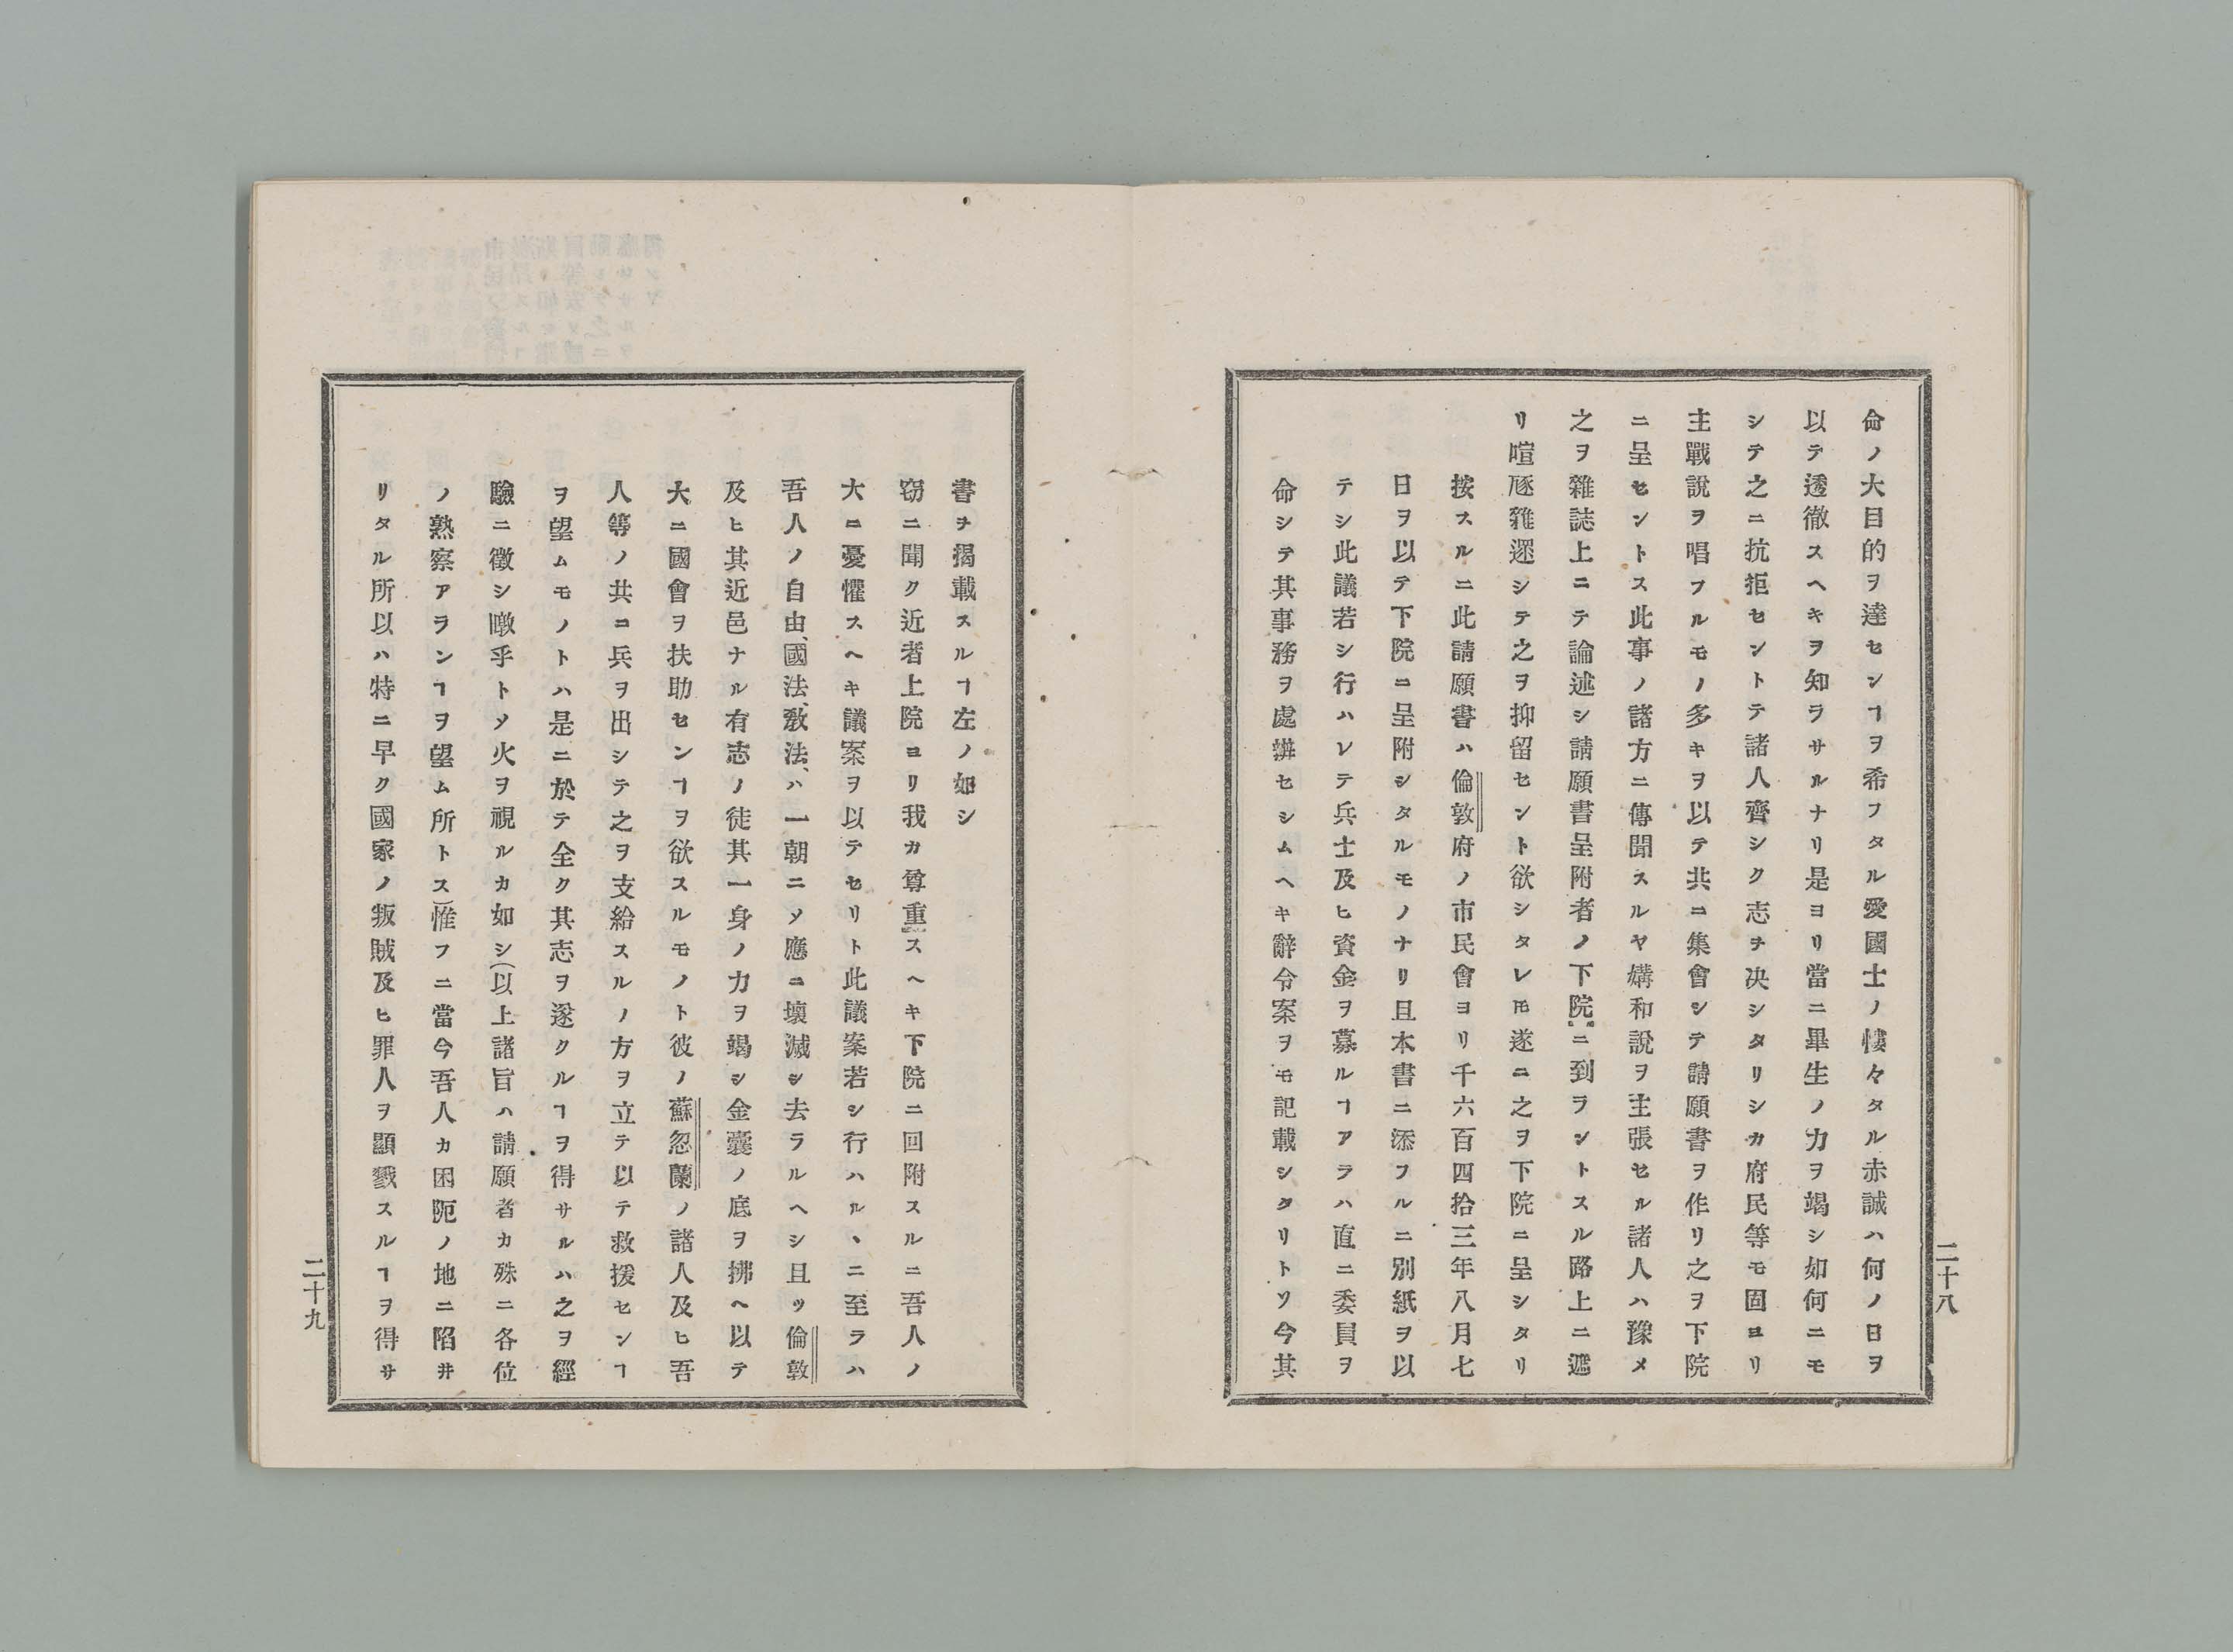 命ノ大目的ヲ達センヿヲ希フタル愛國士ノ悽々タル赤誠ハ何ノ日ヲ
以テ透徹スヘキヲ知ラサルナリ是ヨリ當ニ畢生ノ力ヲ竭シ如何ニモ
シテ之ニ抗拒セントテ諸人齊シク志ヲ决シタリシカ府民等モ固ヨリ
主戰説ヲ唱フルモノ多キヲ以テ共ニ集會シテ請願書ヲ作リ之ヲ下院
ニ呈セントス此事ノ諸方ニ傳聞スルヤ媾和説ヲ主張セル諸人ハ豫メ
之ヲ雜誌上ニテ論述シ請願書呈附者ノ下院ニ到ラントスル路上ニ遮
リ喧豗雜遝シテ之ヲ抑留セント欲シタレ𪜈遂ニ之ヲ下院ニ呈シタリ
按スルニ此請願書ハ倫敦府ノ市民會ヨリ千六百四拾三年八月七
日ヲ以テ下院ニ呈附シタルモノナリ且本書ニ添フルニ別紙ヲ以
テシ此議若シ行ハレテ兵士及ヒ資金ヲ募ルヿアラハ直ニ委員ヲ
命シテ其事務ヲ處辨セシムヘキ辭令案ヲモ記載シタリトソ今其
二十八
書ヲ揭載スルヿ左ノ如シ
窃ニ聞ク近者上院ヨリ我カ尊重スヘキ下院ニ回附スルニ吾人ノ
大ニ憂懼スヘキ議案ヲ以テセリト此議案若シ行ハルヽニ至ラハ
吾人ノ自由、國法、敎法、ハ一朝ニメ應ニ壞滅シ去ラルヘシ且ツ倫敦
及ヒ其近邑ナル有志ノ徒其一身ノ力ヲ竭シ金囊ノ底ヲ拂ヘ以テ
大ニ國會ヲ扶助センヿヲ欲スルモノト彼ノ蘇忽蘭ノ諸人及ヒ吾
人等ノ共ニ兵ヲ出シテ之ヲ支給スルノ方ヲ立テ以テ救援センヿ
ヲ望ムモノトハ是ニ於テ全ク其志ヲ遂クルヿヲ得サルハ之ヲ經
驗ニ徵シ暾乎トメ火ヲ視ルカ如シ（以上諸旨ハ請願者カ殊ニ各位
ノ熟察アランヿヲ望ム所トス）惟フニ當今吾人カ困阨ノ地ニ陷井
リタル所以ハ特ニ早ク國家ノ叛賊及ヒ罪人ヲ顯戮スルヿヲ得サ
二十九